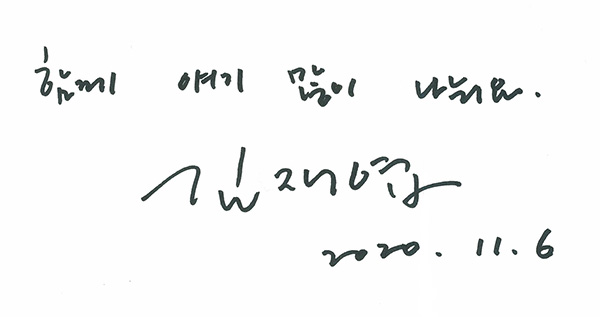 함께 얘기 많이 나눠요.
2020. 11. 6